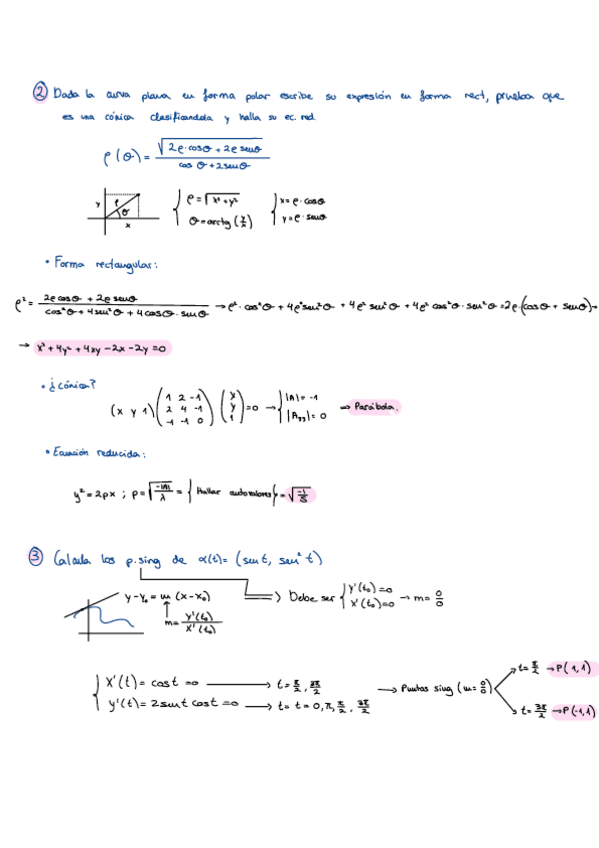 2 Dada la curva plana en forma polar escribe su expresión en forma rect, prueba que
es una cónica clasificandola y halla su ec. red.
ρ(θ) = √(2ρ·cosθ + 2ρ senθ) / (cosθ + 2senθ)
y ρ θ x { ρ = √(x²+y²) { x = ρ·cosθ
θ = arctg(y/x) y = ρ·senθ
• Forma rectangular:
ρ² = (2ρcosθ + 2ρsenθ) / (cos²θ + 4sen²θ + 4cosθ·senθ) → ρ²·cos²θ + 4ρ²sen²θ + 4ρ²sen²θ + 4ρ²cos²θ·sen²θ = 2ρ·(cosθ + senθ) →
→ x² + 4y² + 4xy − 2x − 2y = 0
• ¿cónica?
(x y 1) (1 2 -1 / 2 4 -1 / -1 -1 0) (x / y / 1) = 0 → { |A| = -1 / |A₃₃| = 0 → Parábola.
• Ecuación reducida:
y² = 2px ; p = √(-|A|/λ) = { Hallar autovalores } = √(-1/5)
3 Calcula los p.sing de α(t) = (sent, sen²t)
y − y₀ = m (x − x₀) → Debe ser { y'(t₀) = 0 / x'(t₀) = 0 → m = 0/0
m = y'(t₀) / x'(t₀)
{ x'(t) = cost = 0 → t = π/2, 3π/2
y'(t) = 2sent cost = 0 → t = t = 0, π, π/2, 3π/2
→ Puntos sing (m = 0/0)
t = π/2 → P(1,1)
t = 3π/2 → P(-1,1)